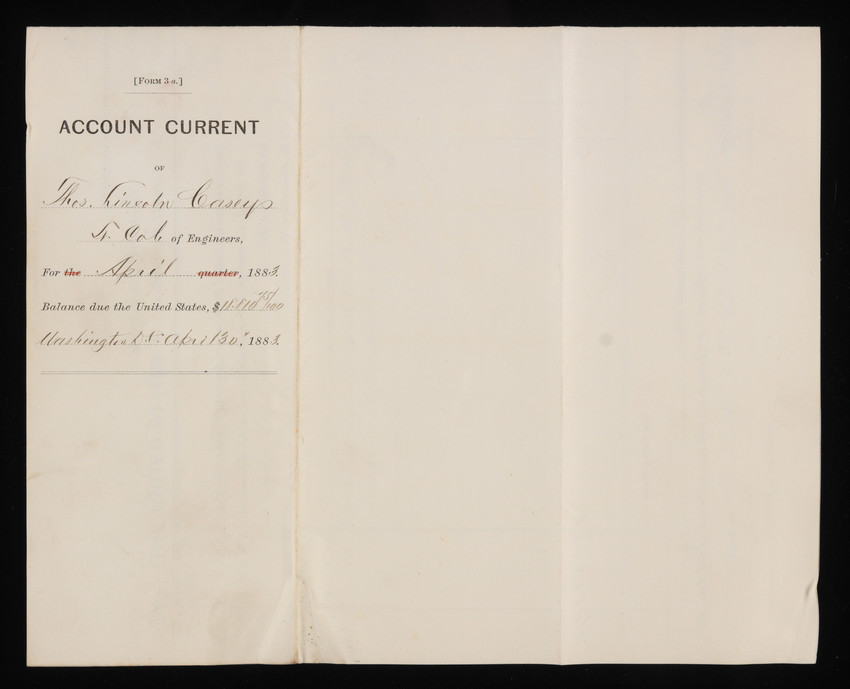 [FORM 3-a.]
ACCOUNT CURRENT
OF
Thos. Lincoln Casey
Lt. Col. of Engineers,
For the April quarter, 1883.
Balance due the United States, $18.810 75/100
Washington D.C. April 30", 1883.